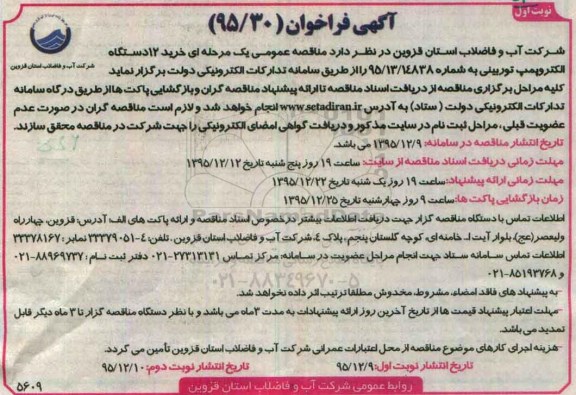 نوبت اول
آگهی فراخوان (۹۵/۳۰)
شرکت آب و فاضلاب استان قزوین
شرکت آب و فاضلاب استان قزوین در نظر دارد مناقصه عمومی یک مرحله ای خرید ۱۲دستگاه
الکتروپمپ توربینی به شماره ۹۵/۱۳/۱۴۸۳۸ را از طریق سامانه تدارکات الکترونیکی دولت برگزار نماید
کلیه مراحل برگزاری مناقصه از دریافت اسناد مناقصه تا ارائه پیشنهاد مناقصه گران و بازگشایی پاکت ها از طریق درگاه سامانه
تدارکات الکترونیکی دولت ( ستاد) به آدرس www.setadiran.ir انجام خواهد شد و لازم است مناقصه گران در صورت عدم
عضویت قبلی ، مراحل ثبت نام در سایت مذکور و دریافت گواهی امضای الکترونیکی را جهت شرکت در مناقصه محقق سازند.
تاریخ انتشار مناقصه در سامانه: ۱۳۹۵/۱۲/۹ می باشد.
مهلت زمانی دریافت اسناد مناقصه از سایت: ساعت ۱۹ روز پنج شنبه تاریخ ۱۳۹۵/۱۲/۱۲
مهلت زمانی ارائه پیشنهاد: ساعت ۱۹ روز یک شنبه تاریخ ۱۳۹۵/۱۲/۲۲
زمان بازگشایی پاکت ها: ساعت ۹ روز چهارشنبه تاریخ ۱۳۹۵/۱۲/۲۵
اطلاعات تماس با دستگاه مناقصه گزار جهت دریافت اطلاعات بیشتر در خصوص اسناد مناقصه و ارائه پاکت های الف: آدرس: قزوین، چهارراه
ولیعصر(عج)، بلوار آیت ا.. خامنه ای، کوچه گلستان پنجم ، پلاک ۴، شرکت آب و فاضلاب استان قزوین . تلفن: ۴-۳۳۳۷۹۰۵۱ نمابر : ۳۳۳۷۸۱۶۷
اطلاعات تماس سامانه ستاد جهت انجام مراحل عضویت در سامانه: مرکز تماس ۲۷۳۱۳۱۳۱-۰۲۱ دفتر ثبت نام : ۸۸۹۶۹۷۳۷-۰۲۱
و ۸۵۱۹۳۷۶۸-۰۲۱
-به پیشنهاد های فاقد امضاء، مشروط، مخدوش مطلقا ترتیب اثر داده نخواهد شد.
-مهلت اعتبار پیشنهاد قیمت ها از تاریخ آخرین روز ارائه پیشنهادات به مدت ۳ماه می باشد و با نظر دستگاه مناقصه گزار تا ۳ ماه دیگر قابل
تمدید می باشد.
-هزینه اجرای کارهای موضوع مناقصه از محل اعتبارات عمرانی شرکت آب و فاضلاب استان قزوین تأمین می گردد.
تاریخ انتشار نوبت اول: ۹۵/۱۲/۹ تاریخ انتشار نوبت دوم: ۹۵/۱۲/۱۰
روابط عمومی شرکت آب و فاضلاب استان قزوین
۵۶۰۹
۰۲۱-۸۸۳۴۹۶۷۰-۵